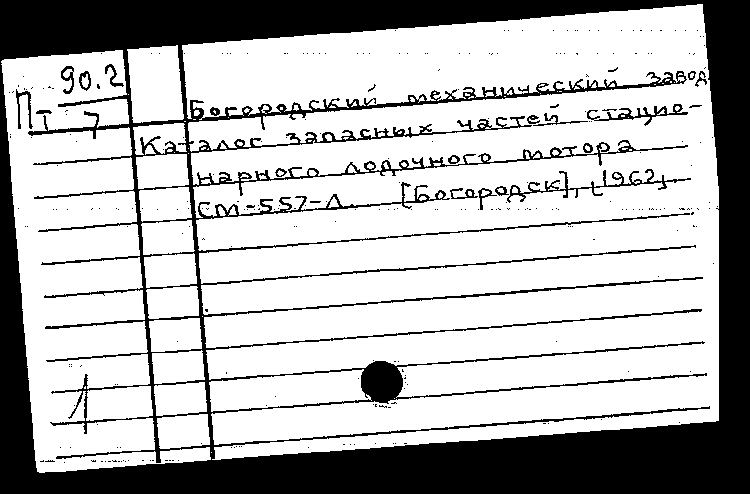 90.2
Пт 7
Богородский механический завод
Каталог запасных частей стацио-
нарного лодочного мотора
СМ-557-Л. [Богородск], [1962].
1